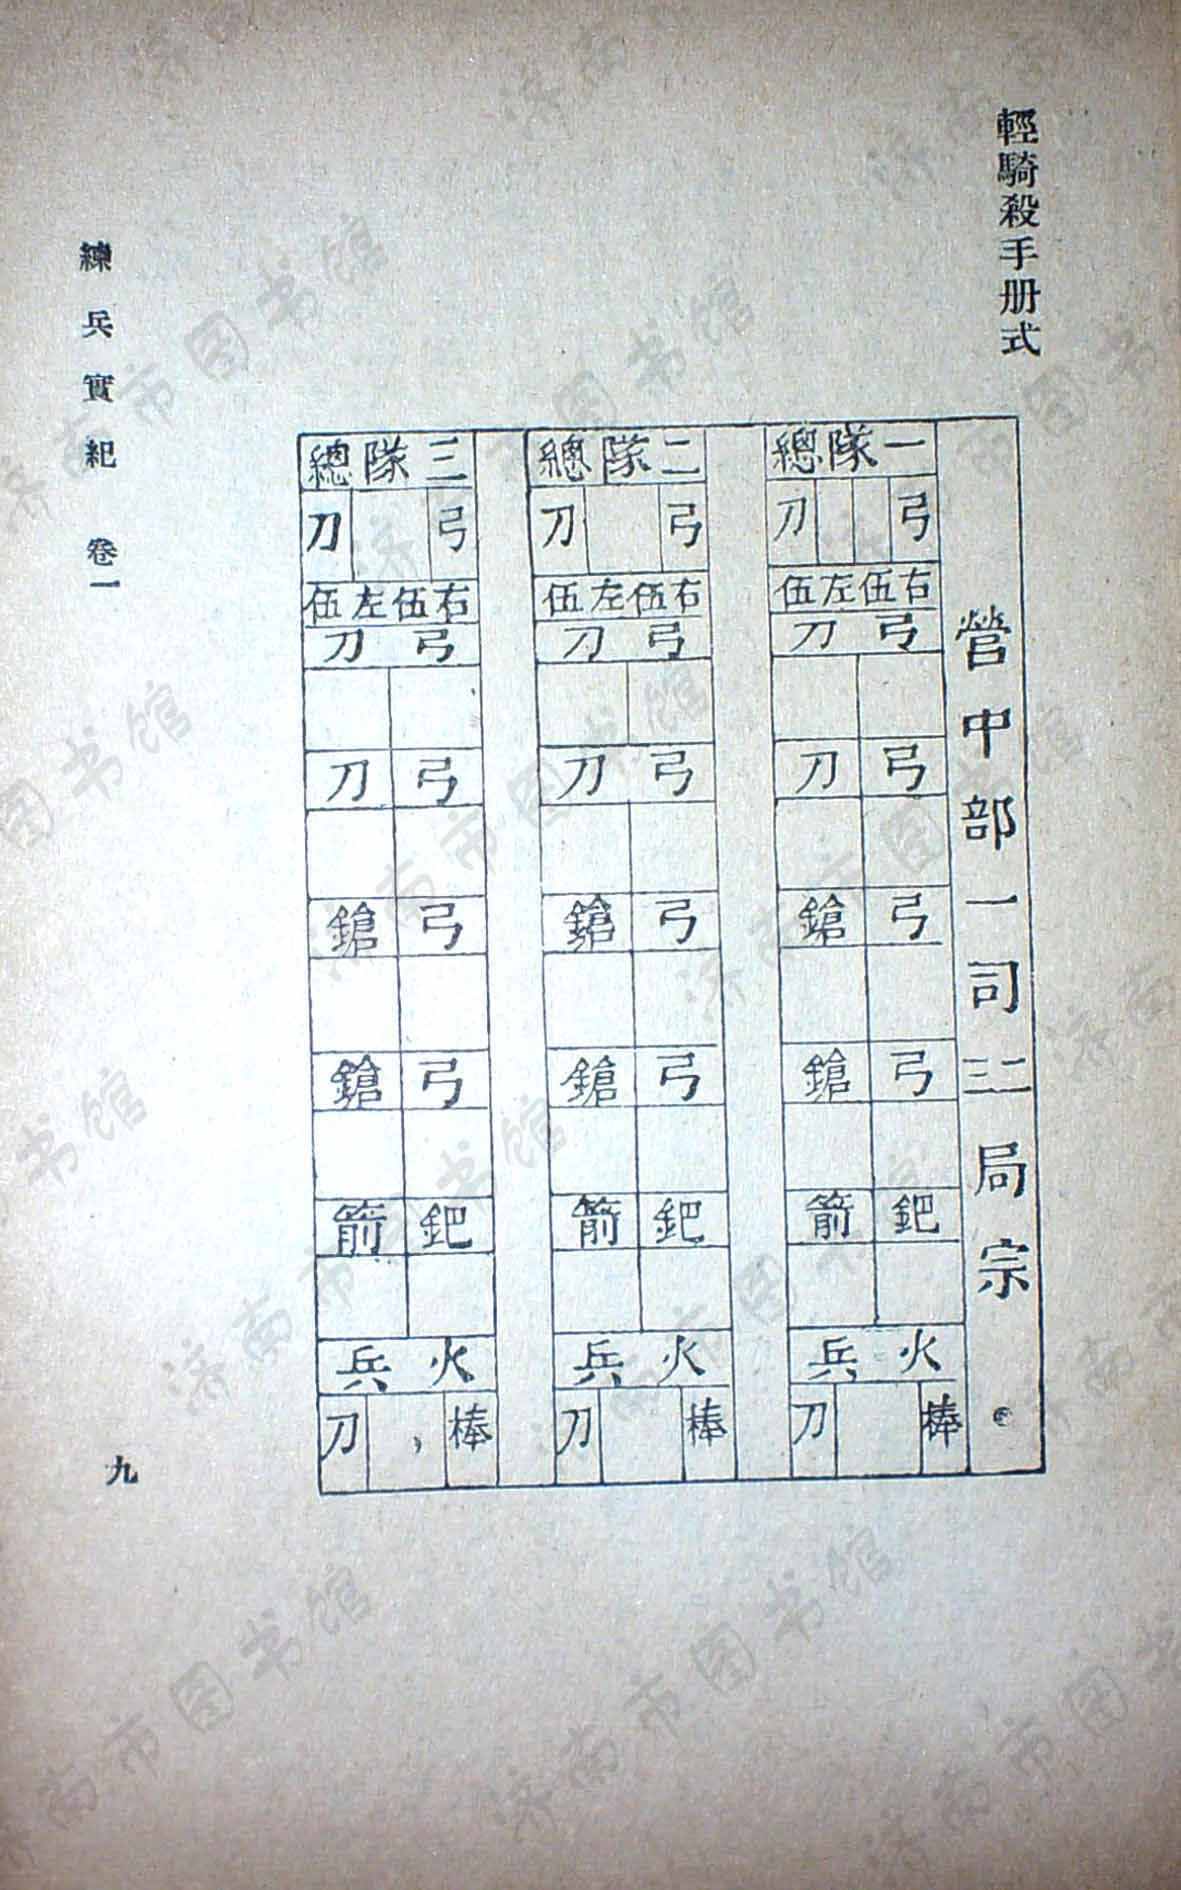 輕騎殺手册式
營中部一司二三局宗
一隊總
弓 刀
右伍左伍
弓 刀
弓 刀
弓 鎗
弓 鎗
鈀 箭
火兵
棒 刀
二隊總
弓 刀
右伍左伍
弓 刀
弓 刀
弓 鎗
弓 鎗
鈀 箭
火兵
棒 刀
三隊總
弓 刀
右伍左伍
弓 刀
弓 刀
弓 鎗
弓 鎗
鈀 箭
火兵
棒 刀
練兵實紀 卷一
九
济南市图书馆